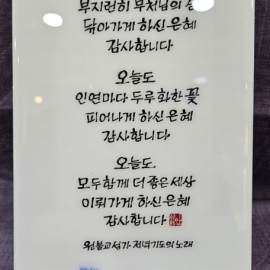 부지런히 부처님의
닦아가게 하신 은혜
감사합니다
오늘도
인연마다 두루화한 꽃
피어나게 하신 은혜
감사합니다
오늘도.
모두함께 더 좋은세상
이뤄가게 하신 은혜
감사합니다
원불교성가 저녁기도의 노래